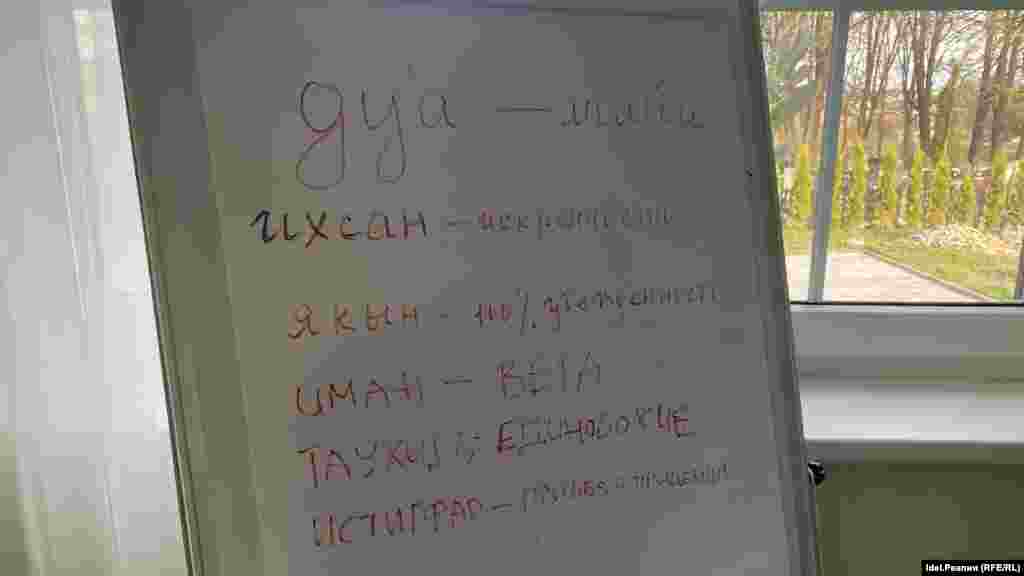 дуа —
ихсан — искренность
якын — 100% уверенность
иман — ВЕРА
ТАУХИД — ЕДИНОБОЖИЕ
ИСТИГФАР — ПРОСЬБА о ПРОЩЕНИИ
Idel.Реалии (RFE/RL)